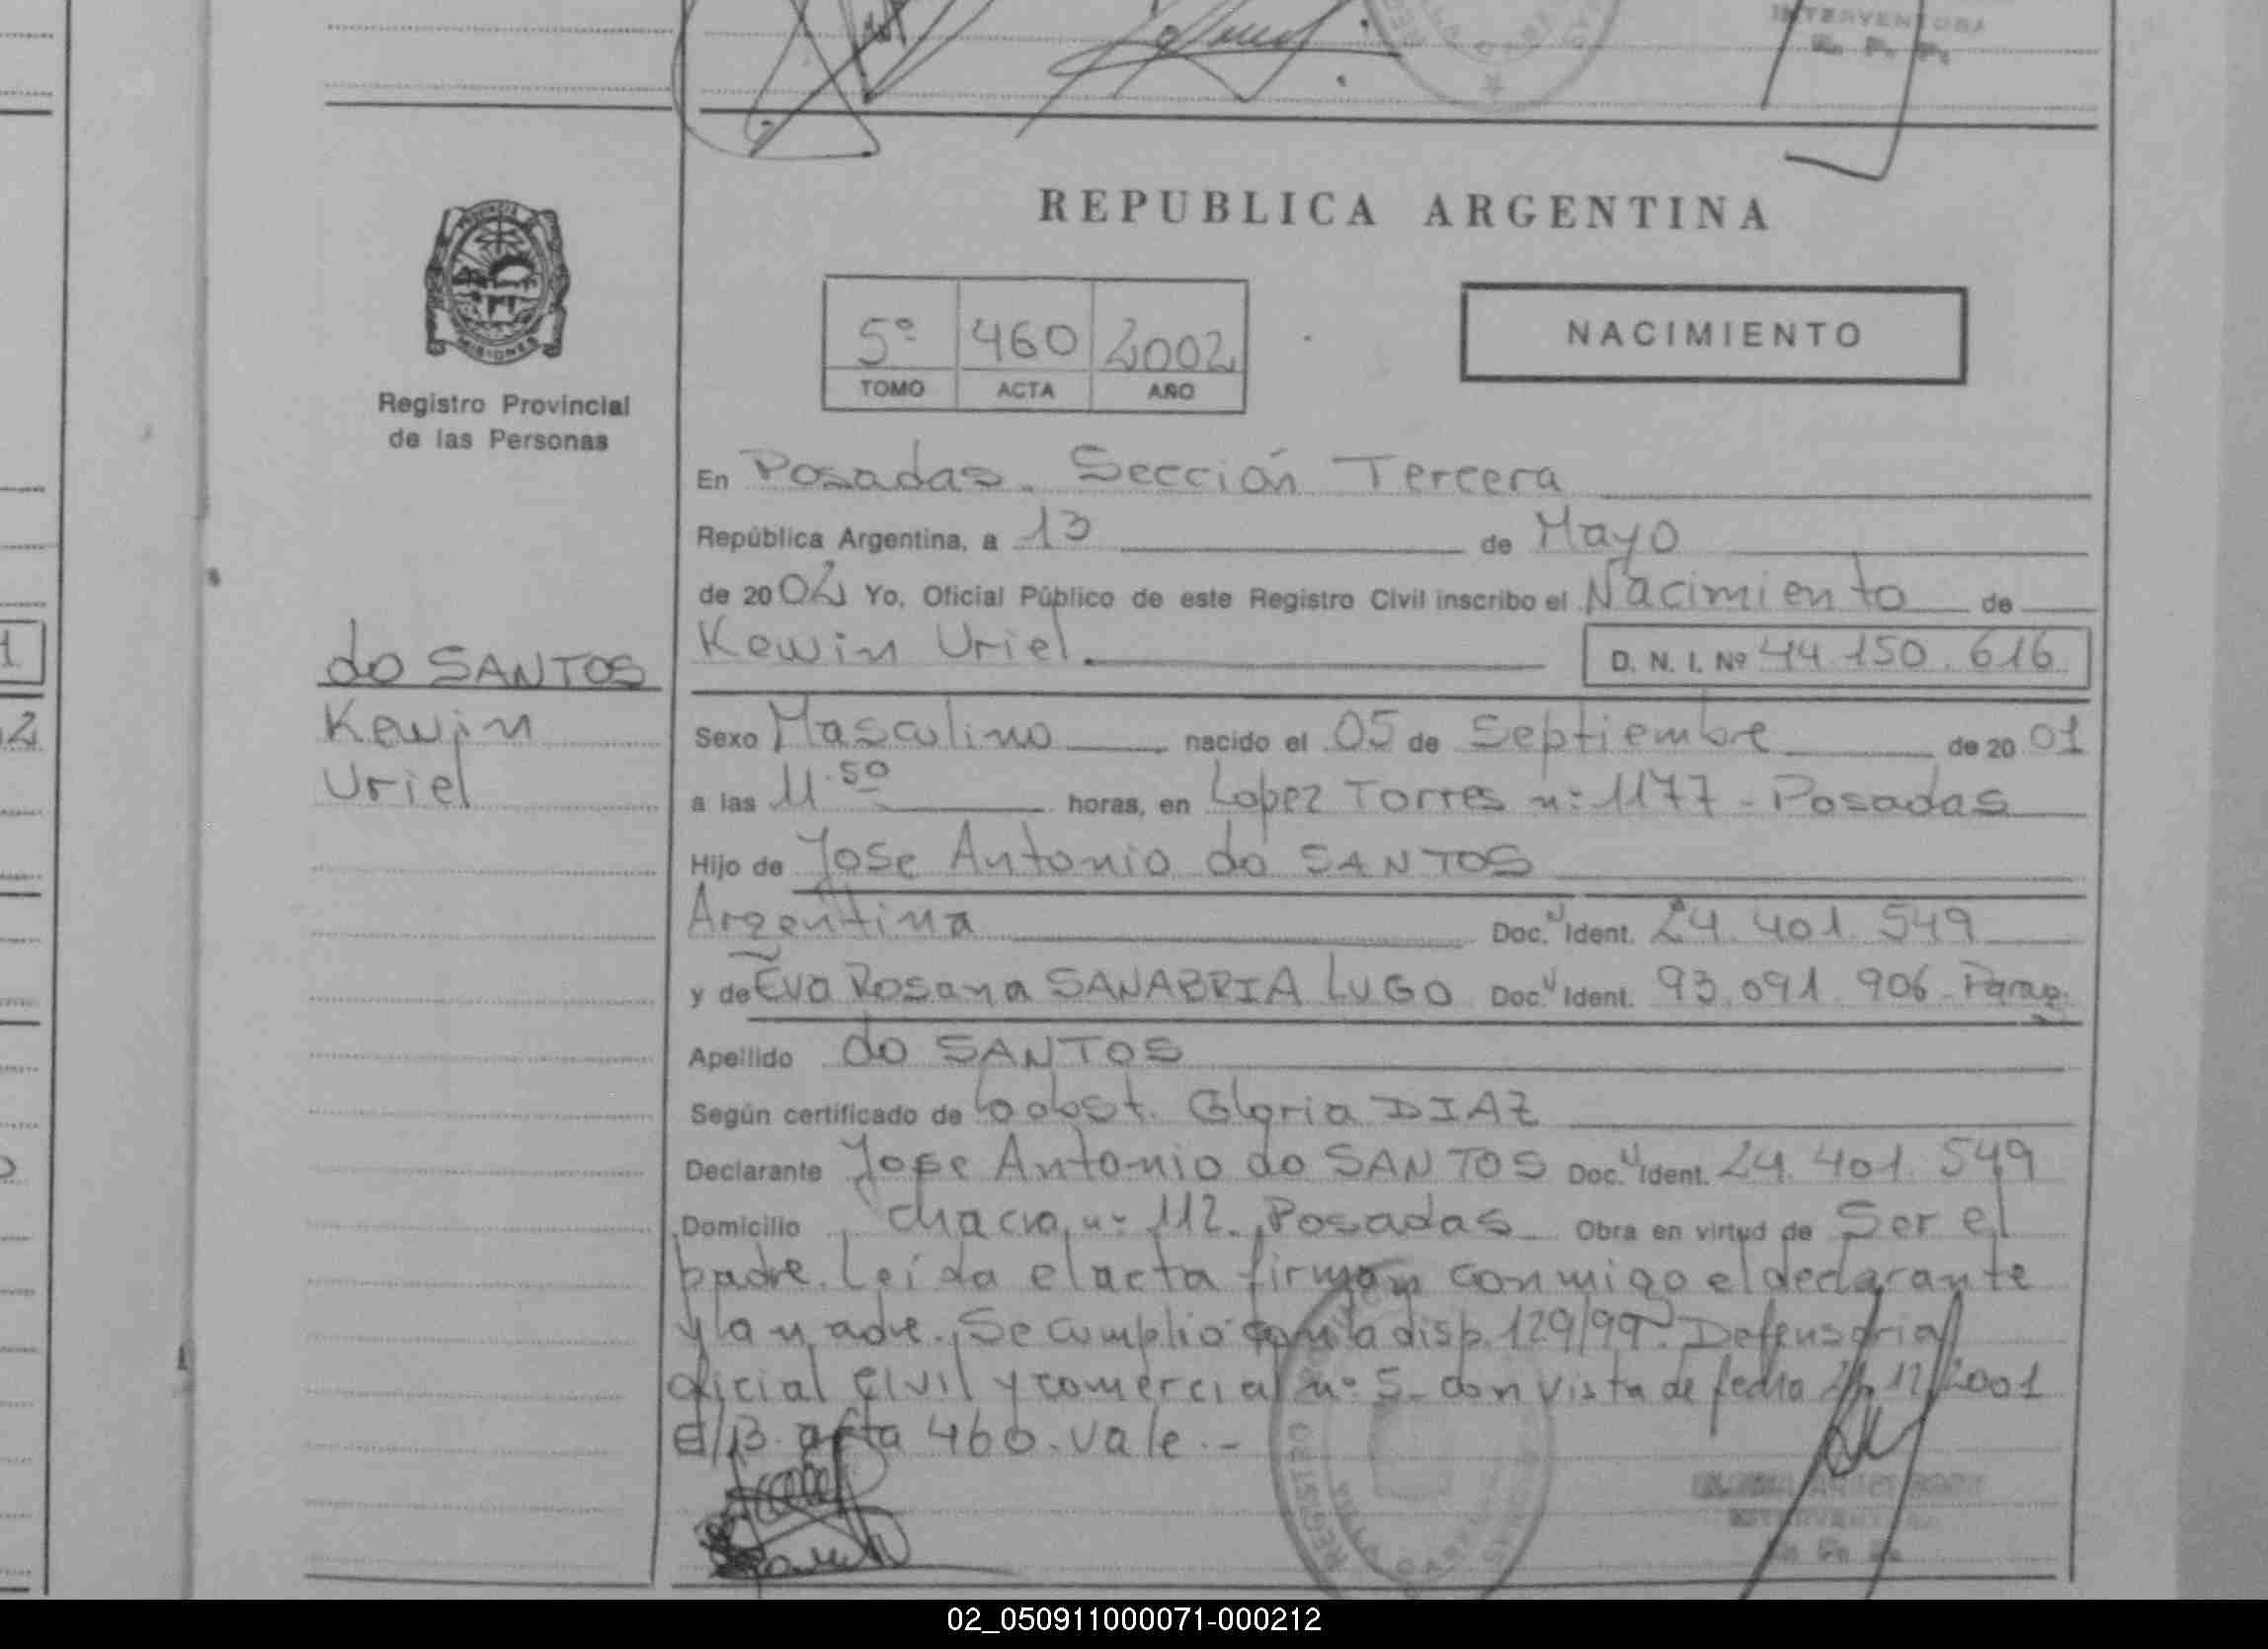 INTERVENTORA
R. P. P.
REPUBLICA ARGENTINA
PROVINCIA
MISIONES
5º 460 2002
TOMO ACTA AÑO
NACIMIENTO
Registro Provincial
de las Personas
En Posadas. Sección Tercera
República Argentina, a 13 de Mayo
de 2002 Yo, Oficial Público de este Registro Civil inscribo el Nacimiento de
Kewin Uriel. D. N. I. Nº 44.150.616
do SANTOS
Kewin
Uriel
Sexo Masculino nacido el 05 de Septiembre de 2001
a las 11.50 horas, en Lopez Torres nº 1177 - Posadas
Hijo de Jose Antonio do SANTOS
Argentina Doc. Ident. 24.401.549
y de Eva Rosana SANABRIA LUGO Doc. Ident. 93.091.906 - Parag.
Apellido do SANTOS
Según certificado de obst. Gloria DIAZ
Declarante Jose Antonio do SANTOS Doc. Ident. 24.401.549
Domicilio chacra nº 112. Posadas Obra en virtud de Ser el
padre. Leída el acta firman conmigo el declarante
y la madre. Se cumplio con la disp. 129/99. Defensoria
oficial Civil y comercial nº 5. con vista de fecha 12/2001
E/13 acta 460. vale.-
REGISTRO
02_050911000071-000212